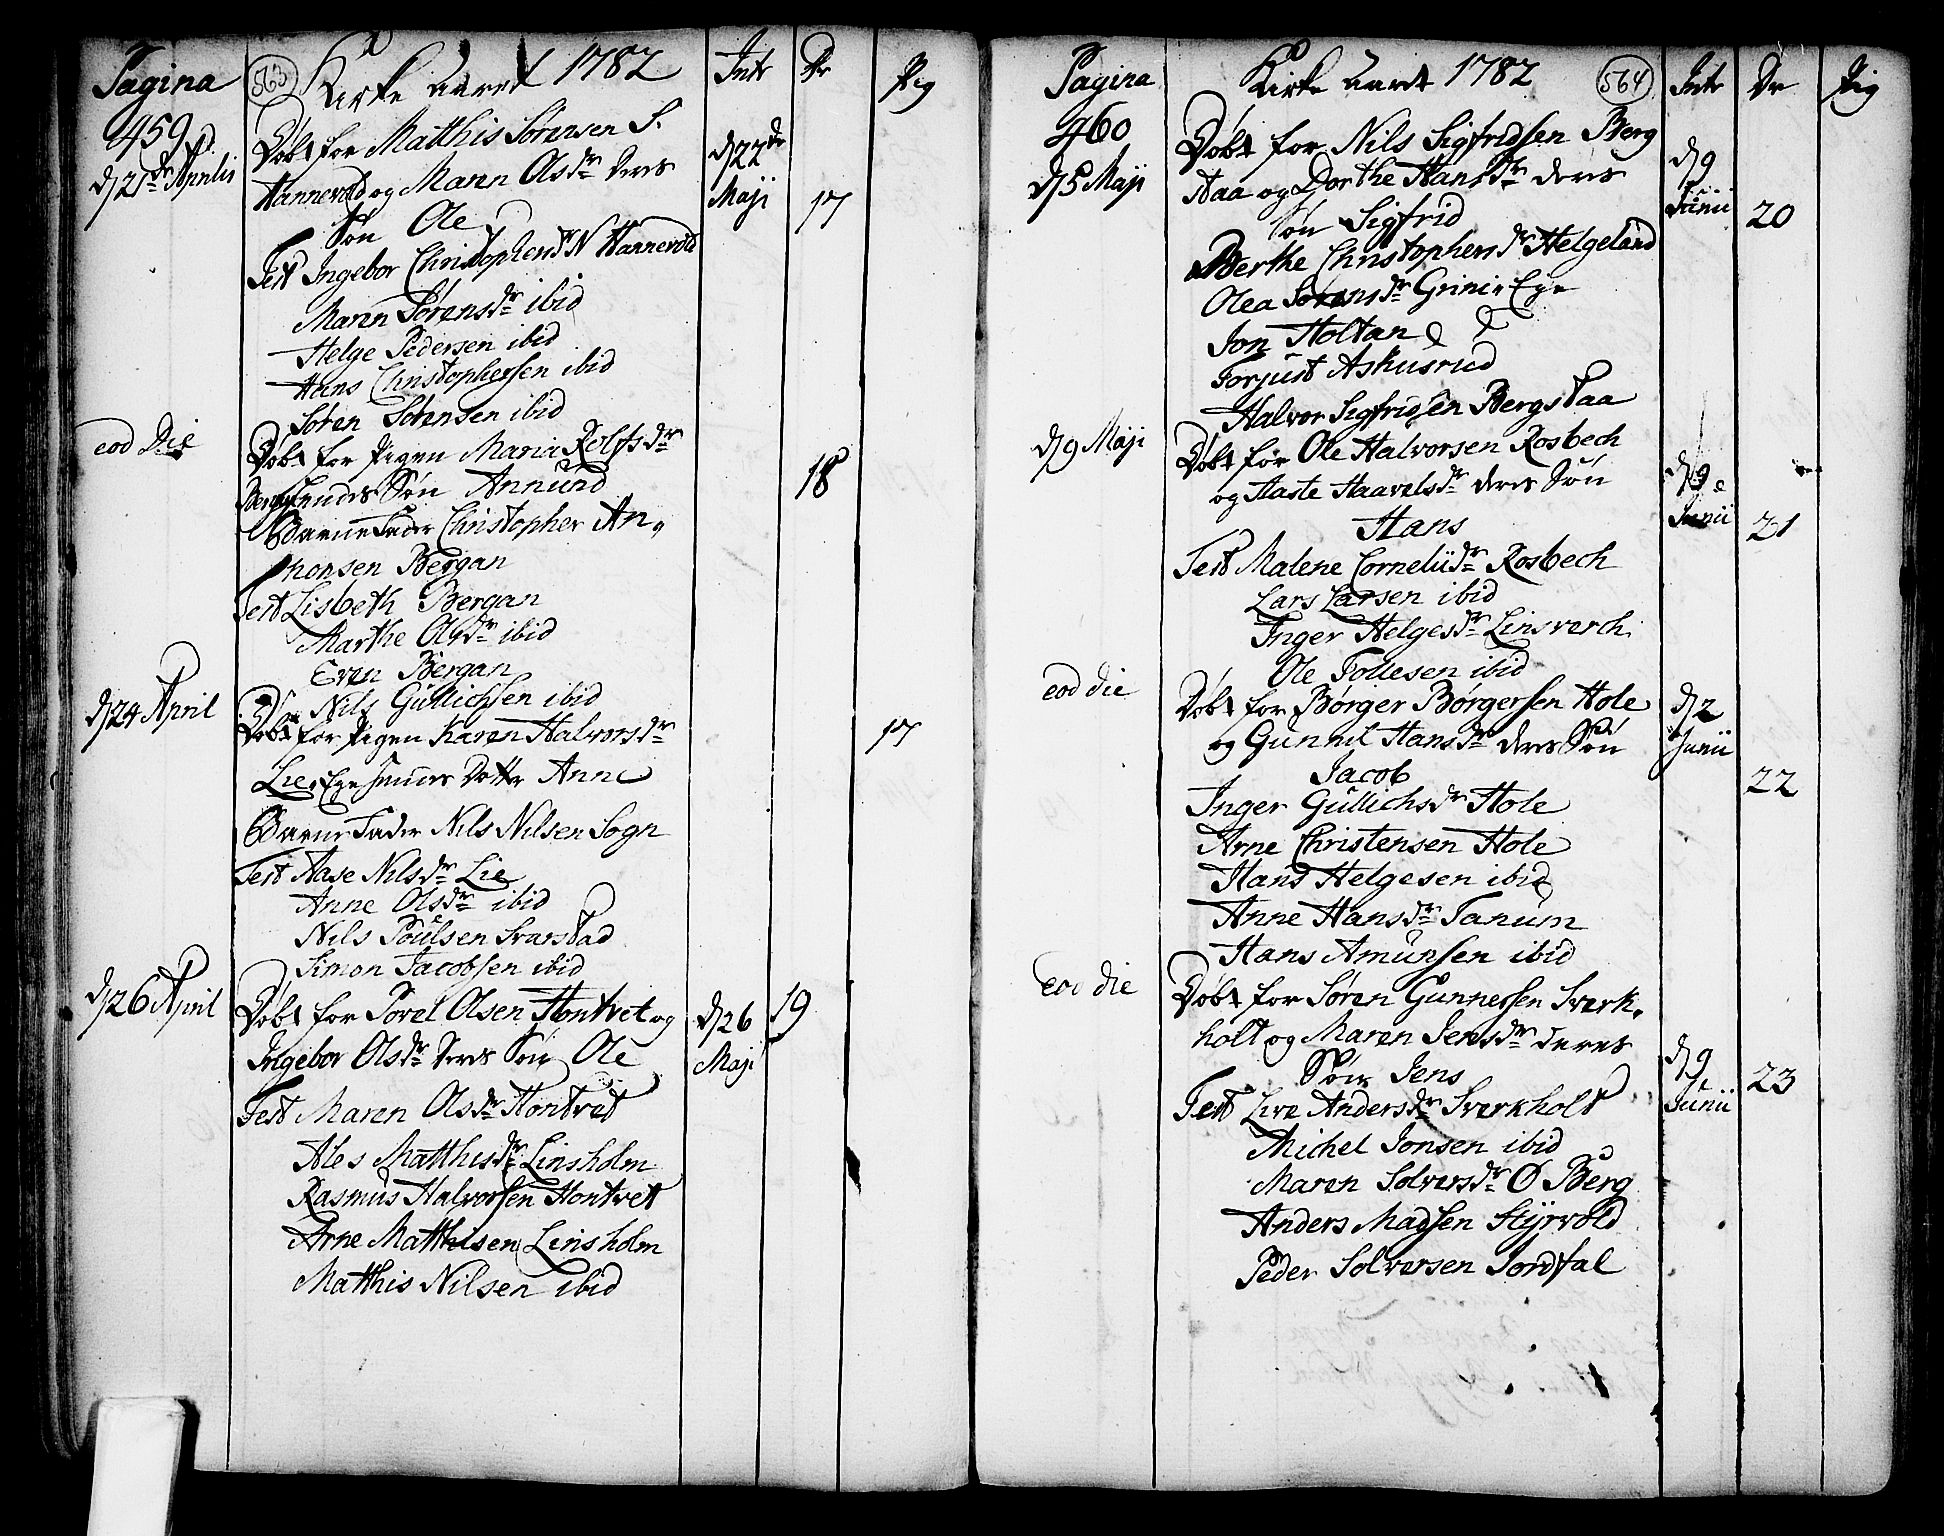 Pagina 459
563
Kirke Aaret 1782
Intr
Dr
Pig
d 21de Aprilis
Døbt for Matthis Sørensen S.
Hannevold og Maren Olsdr deres
Søn Ole
Test Ingebor Christophersdr N Hannevold
Maren Sørensdr ibid
Helge Pedersen ibid
Hans Christophersen ibid
Søren Sørensen ibid
d 22de Maji
17
eod Die
Døbt for Pigen Maria Rolfsdr
Søn Annund
Barne Fader Christopher An,,
Bergan
Test Lisbeth Bergan
Marthe Olsdr ibid
Even Bergan
Nils Gullichsen ibid
18
d 24 April
Døbt for Pigen Karen Halvorsdr
Lie, Ege hendes Dotter Anne
Barne Fader Nils Nilsen Sogn
Test Aase Nilsdr Lie
Anne Olsdr ibid
Nils Poulsen Svarstad
Simon Jacobsen ibid
17
d 26 April
Døbt for Sørel Olsen Hontvet og
Ingebor Olsdr deres Søn Ole
Test Maren Olsdr Hontvet
Ales Matthisdr Linsholm
Rasmus Halvorsen Hontvet
Arne Matthisen Linsholm
Matthis Nilsen ibid
d 26 Maji
19
Pagina 460
Kirke Aaret 1782
564
Intr
Dr
Pig
d 5 Maji
Døbt for Nils Sigfridsen Berg
Staa og Dorthe Hansdr deres
Søn Sigfrid
Berthe Christophersdr Helgeland
Olea Sørensdr Grini, Ege
Jon Holtan
Torjust Askusrud
Halvor Sigfridsen Bergstaa
d 9 Junii
20
d 9 Maji
Døbt for Ole Halvorsen Rosbech
og Aaste Haavelsdr deres Søn
Hans
Test Malene Corneliidr Rosbech
Lars Larsen ibid
Inger Helgesdr Linsverch
Ole Follesen ibid
d 9 Junii
21
eod die
Døbt for Børger Børgersen Hole
og Gunnil Hansdr deres Søn
Jacob
Inger Gullichsdr Hole
Arne Christensen Hole
Hans Helgesen ibid
Anne Hansdr Tanum
Hans Amunsen ibid
d 2 Junii
22
eod die
Døbt for Søren Gunnersen Sverk,
holt og Maren Jensdr deres
Søn Jens
Test Live Andersdr Sverkholt
Michel Jonsen ibid
Maren Solversdr Ø Berg
Anders Madsen Styrvold
Peder Solversen Jordfal
d 9 Junii
23